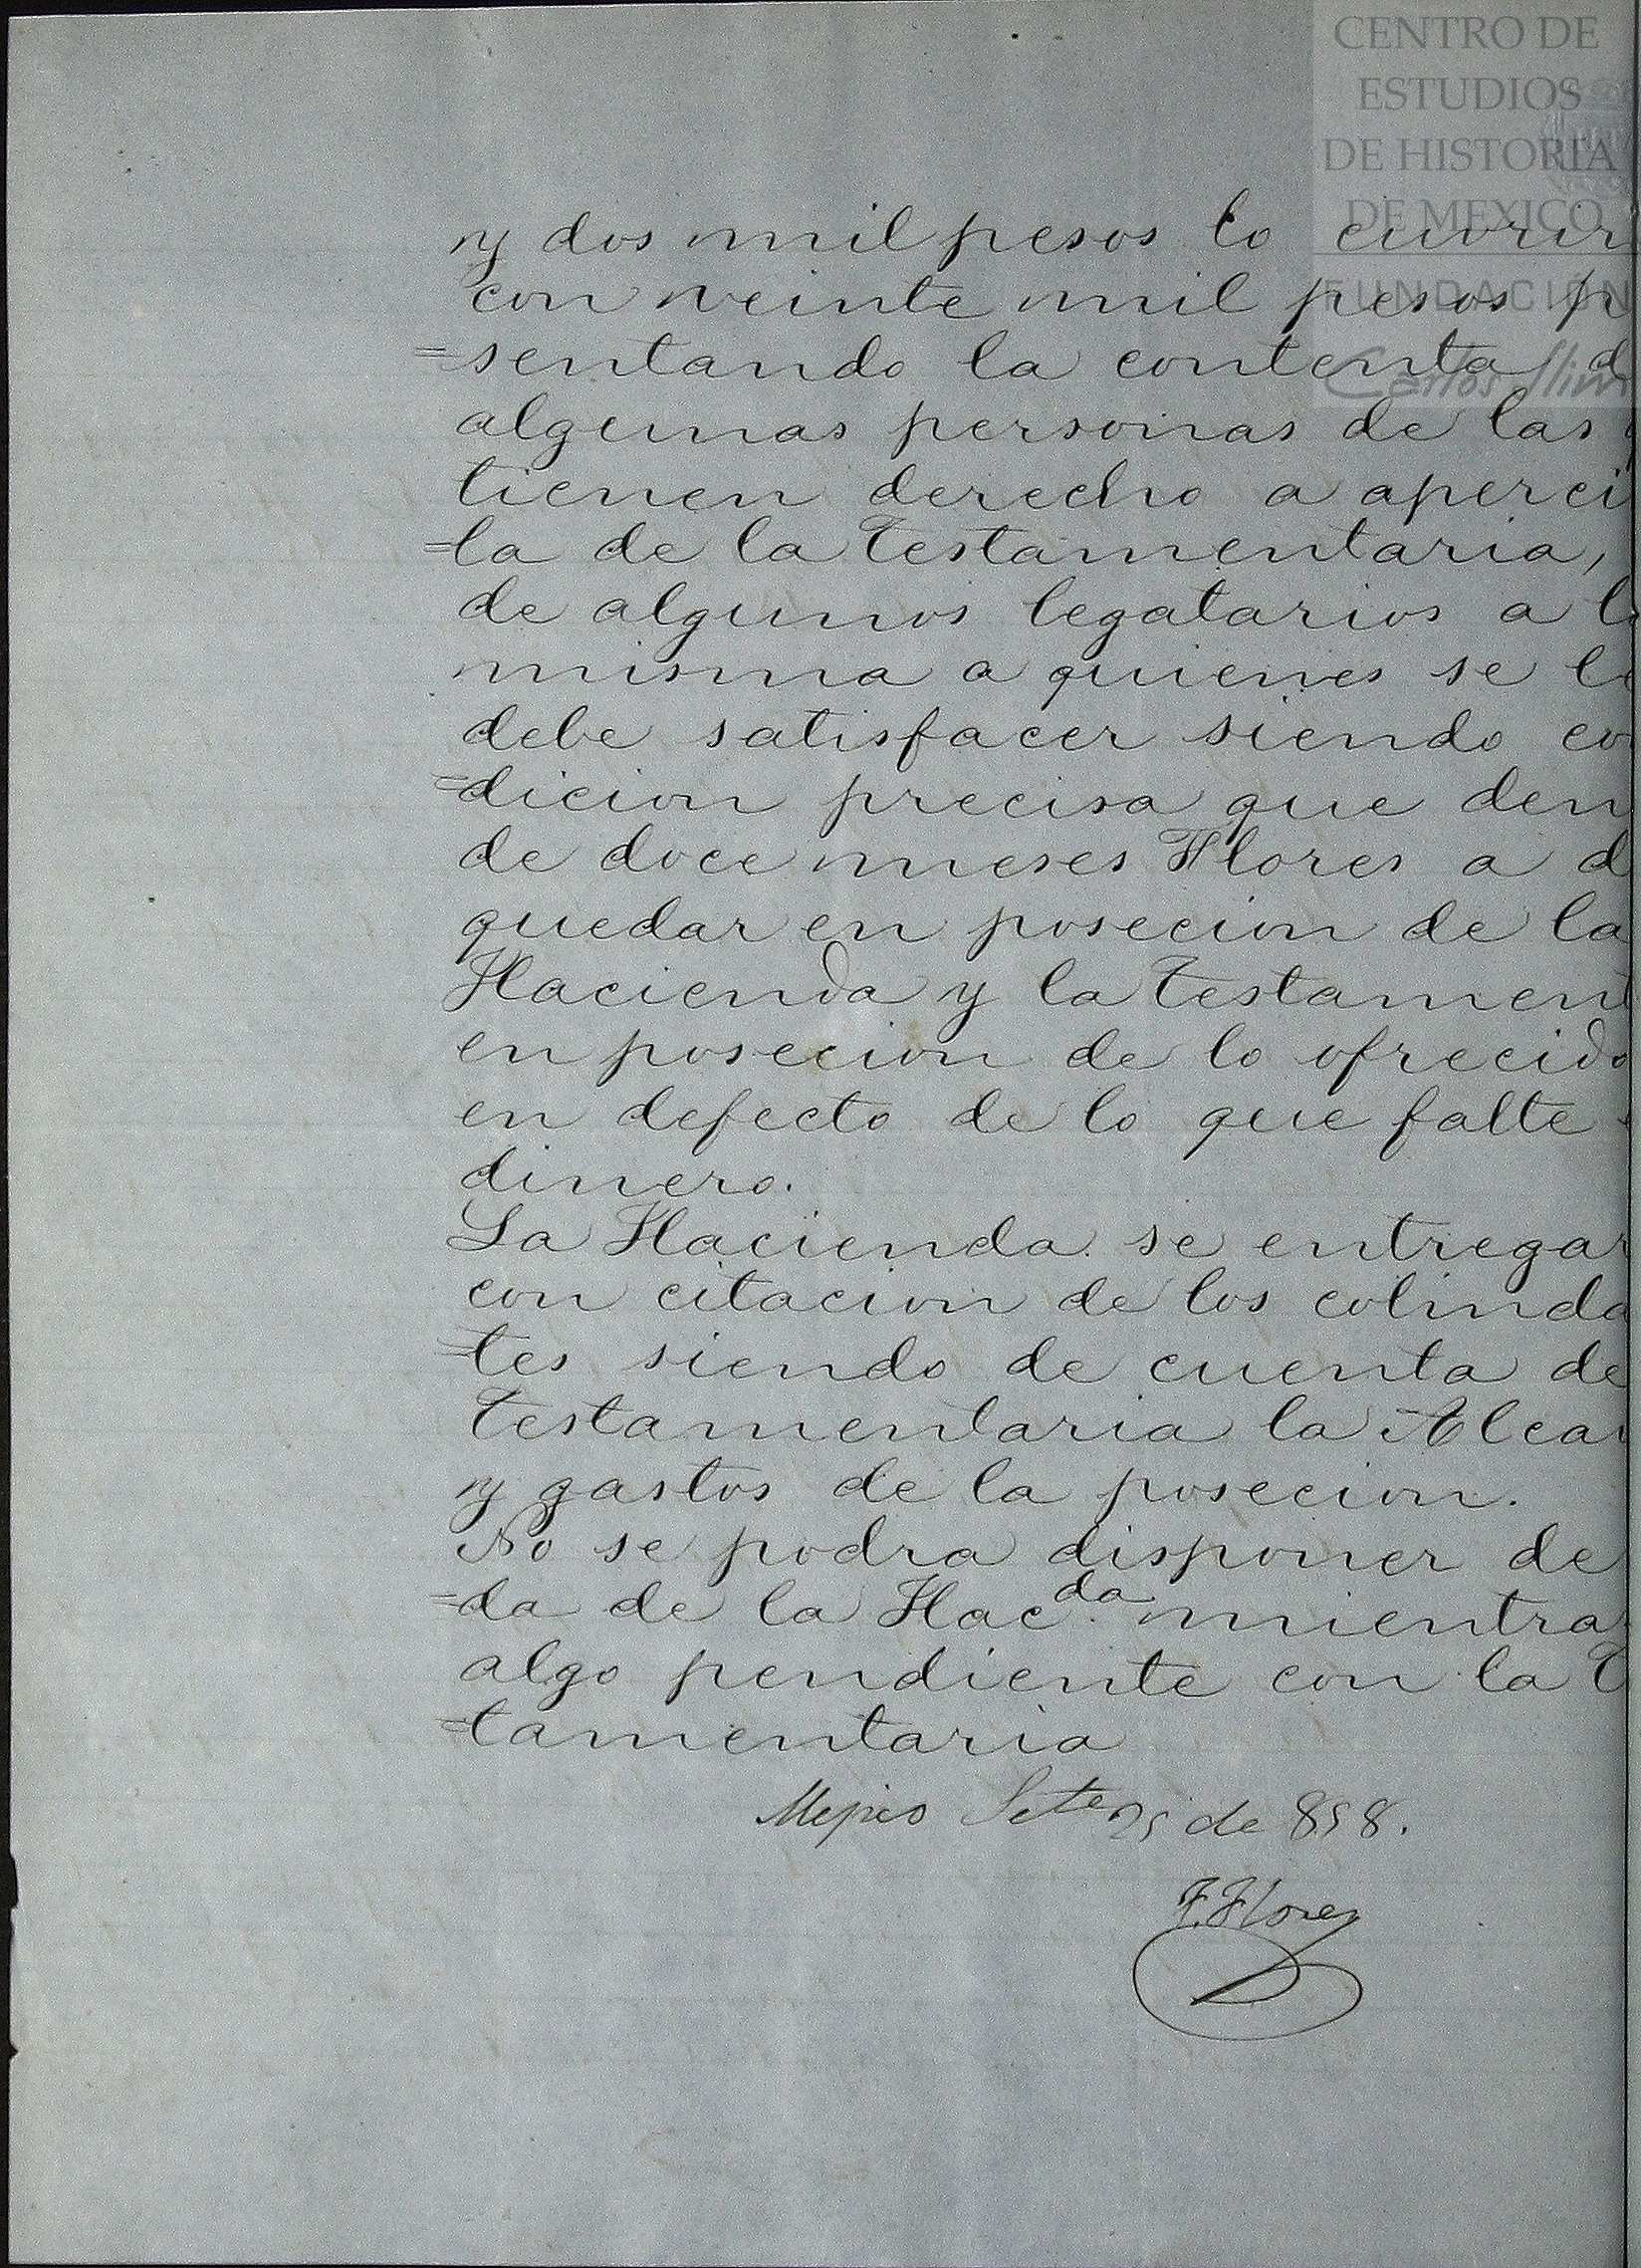 CENTRO DE
ESTUDIOS
DE HISTORIA
DE MEXICO
FUNDACIÓN
Carlos Slim
y dos mil pesos lo cuvrir
con veinte mil pesos p
=sentando la contenta d
algunas personas de las
tienen derecho a aperci
=la de la Testamentaria,
de algunos legatarios a l
misma a quienes se l
debe satisfacer siendo co
=dicion precisa que den
de doce meses Flores a d
quedar en posecion de la
Hacienda y la Testament
en posecion de lo ofrecido
en defecto de lo que falte
dinero.
La Hacienda se entregar
con citacion de los colinda
=tes siendo de cuenta de
Testamentaria la Alca
y gastos de la posecion.
No se podra disponer de
=da de la Hac.da mientra
algo pendiente con la T
=tamentaria
Mejico Sete 25 de 858.
F. Flores